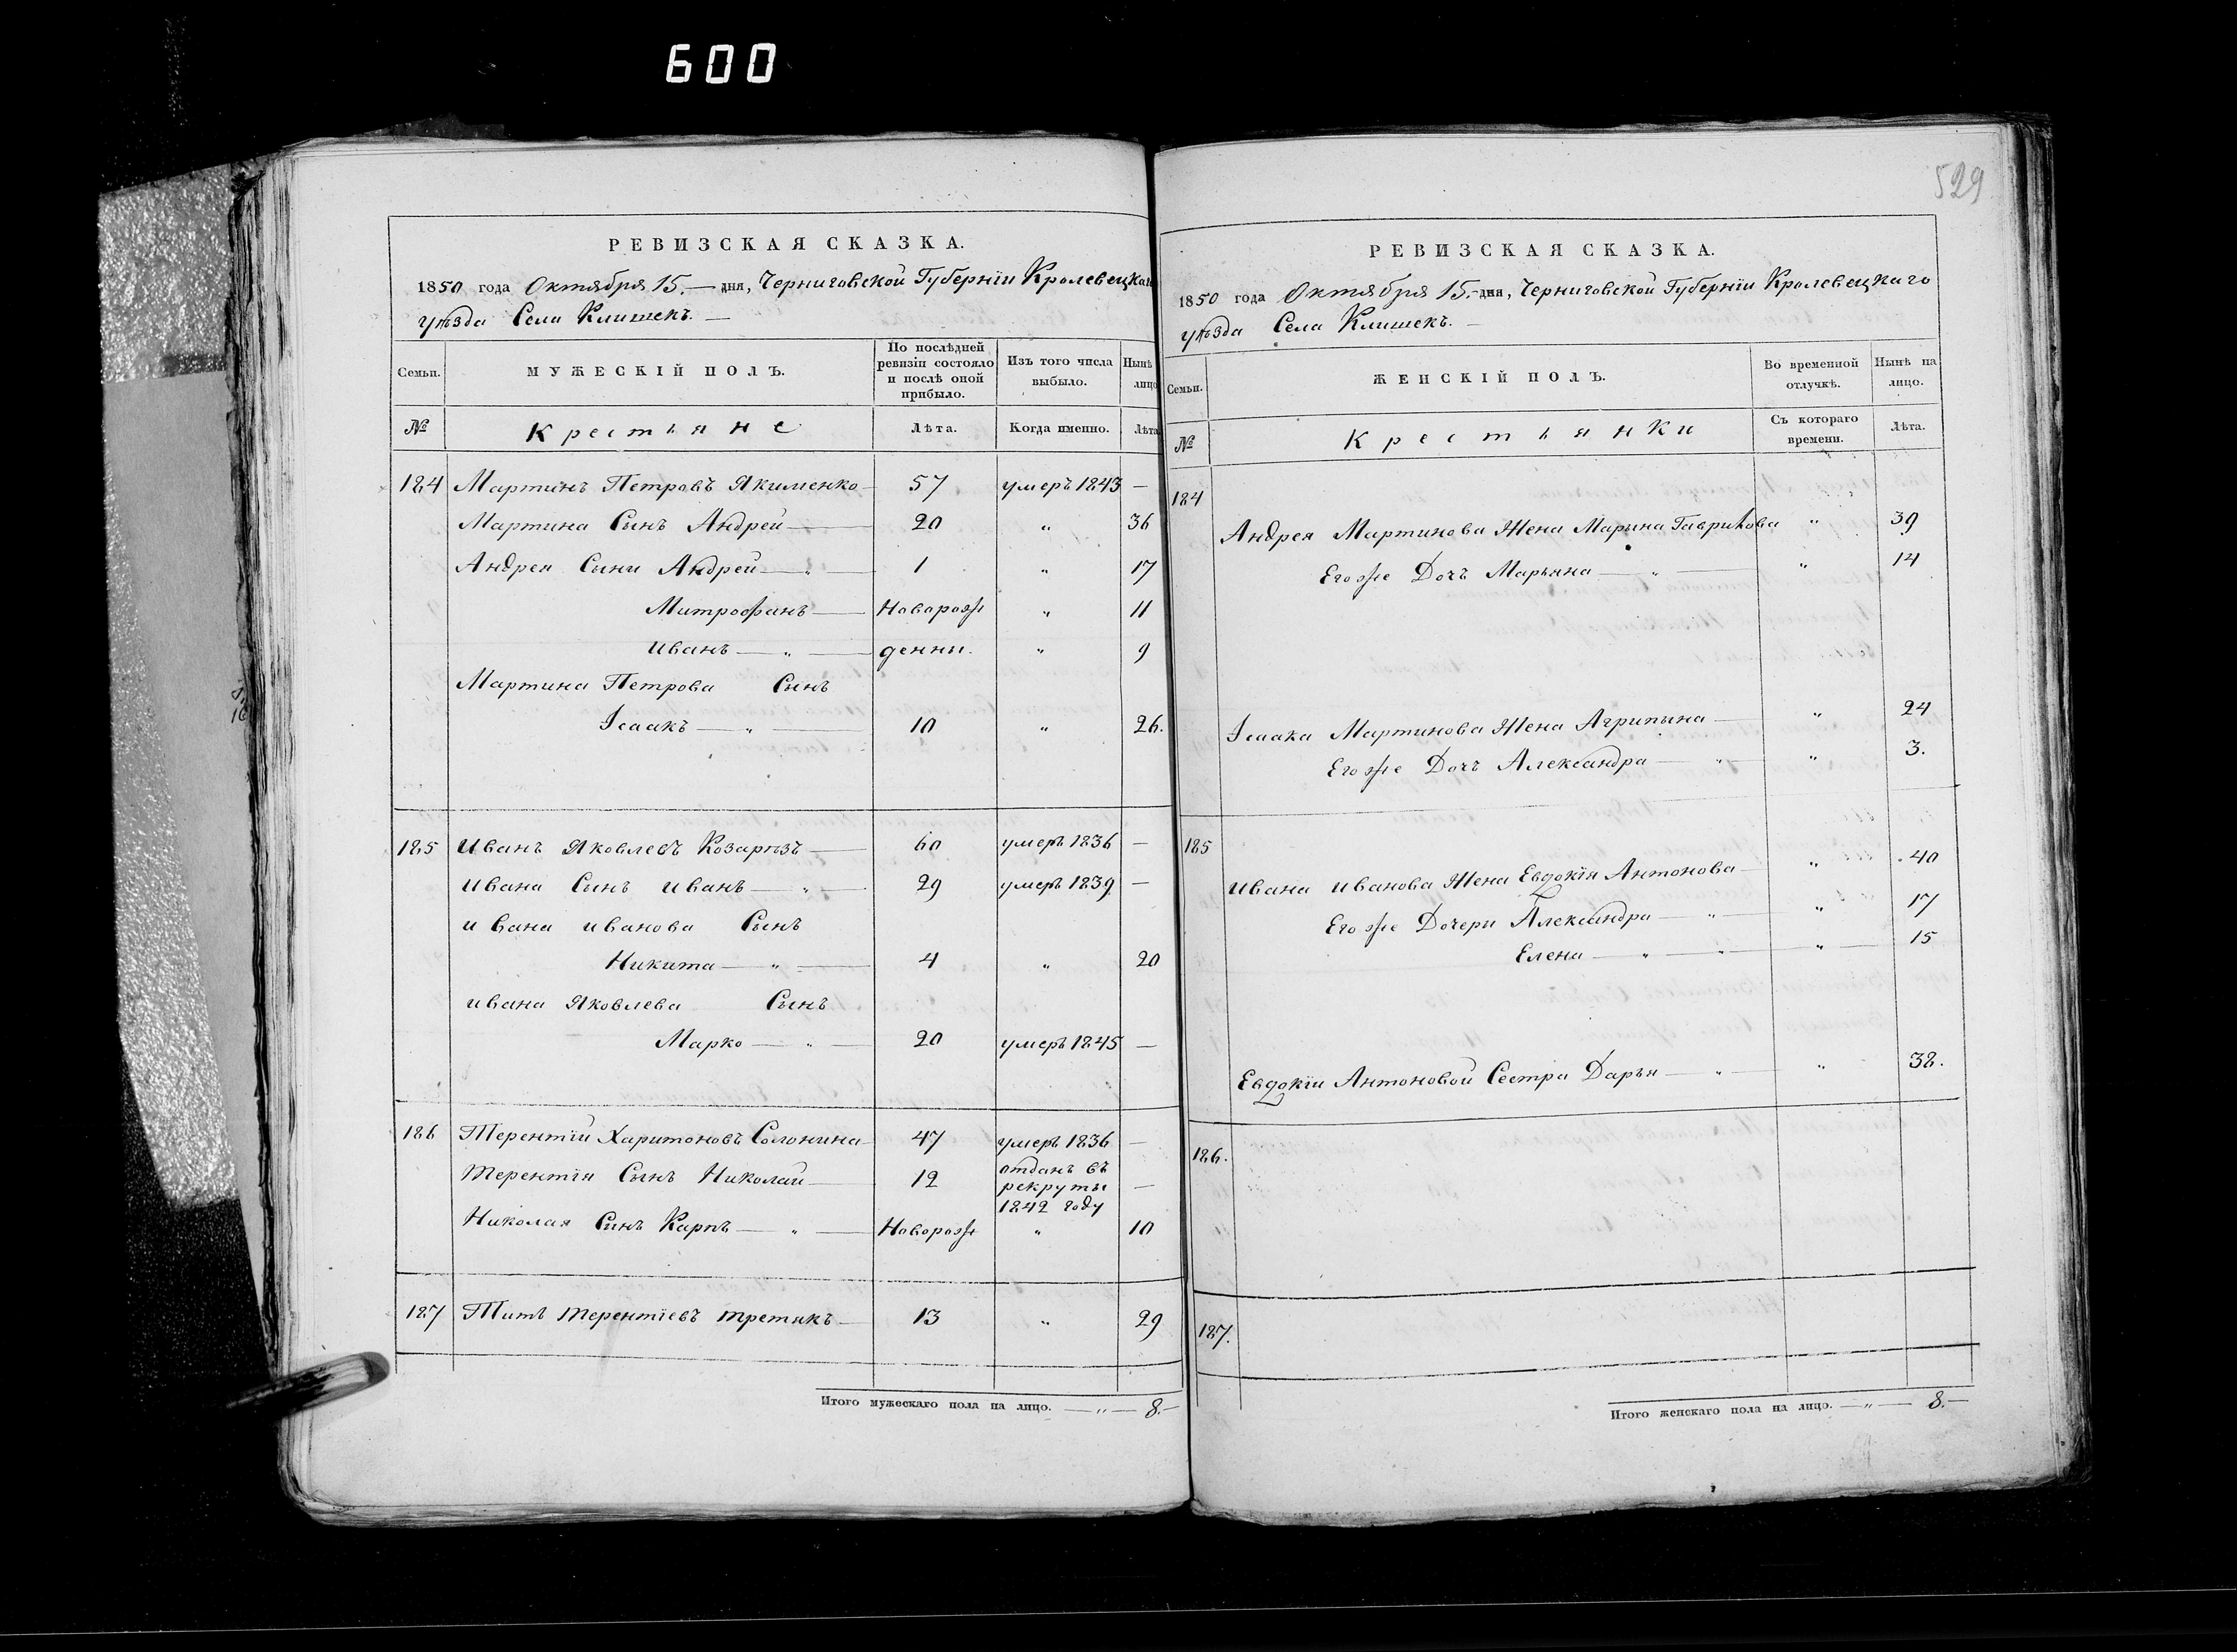 600
РЕВИЗСКАЯ СКАЗКА.
1850 года Октября 15.— дня, Черниговской Губерніи Кролевецкаго
уѣзда Села Клишекъ.—
Семьи.
МУЖЕСКІЙ ПОЛЪ.
По послѣдней ревизіи состояло и послѣ оной прибыло.
Изъ того числа выбыло.
Нынѣ лицо
№
Крестьяне
Лѣта.
Когда именно.
Лѣта
184 Мартинъ Петровъ Якименко 57 умеръ 1843 —
Мартина Сынъ Андрей — 20 " 36
Андрея Сыни Андрей — " 1 " 17
Митрофанъ —Новорож " 11
Иванъ — " — денни. " 9
Мартина Петрова Сынъ
Ісаакъ — " — 10 " 26.
185 Иванъ Яковлевъ Козарезъ — 60 умеръ 1836 —
Ивана Сынъ Иванъ — " — 29 умеръ 1839 —
Ивана Иванова Сынъ
Никита — " — 4 " 20
Ивана Яковлева Сынъ
Марко — " — 20 умеръ 1845 —
186 Терентій Харитоновъ Солонина 47 умеръ 1836 —
Терентія Сынъ Николай — 12 отданъ въ рекруты 1842 году —
Николая Сынъ Карпъ — " — Новорож " 10
187 Титъ Терентіевъ Третякъ — 13 " 29
Итого мужескаго пола на лицо. — " — 8.—
529
РЕВИЗСКАЯ СКАЗКА.
1850 года Октября 15.— дня, Черниговской Губерніи Кролевецкаго
уѣзда Села Клишекъ.—
Семьи.
ЖЕНСКІЙ ПОЛЪ.
Во временной отлучкѣ.
Нынѣ на лицо.
№
Крестьянки
Съ котораго времени.
Лѣта.
184
Андрея Мартинова Жена Марина Гаврилова " 39
Егоже Дочъ Марьяна — " — " 14
Ісаака Мартинова Жена Агрипына — " 24
Егоже Дочъ Александра — " — " 3.
185
Ивана Иванова Жена Евдокія Антонова — " 40
Егоже Дочери Александра — " — " 17
Елена — " — " — " — 15
Евдокіи Антоновой Сестра Дарья — " — " 38.
186.
187.
Итого женскаго пола на лицо. — " — 8.—